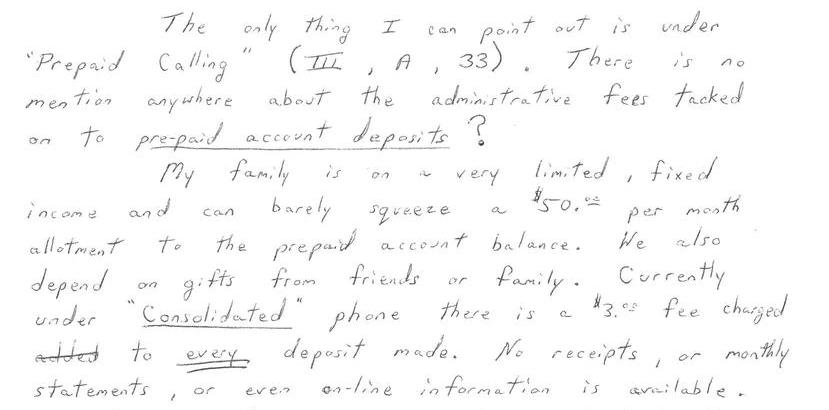 The only thing I can point out is under
"Prepaid Calling" (III, A, 33). There is no
mention anywhere about the administrative fees tacked
on to pre-paid account deposits?
My family is on a very limited, fixed
income and can barely squeeze a $50.00 per month
allotment to the prepaid account balance. We also
depend on gifts from friends or family. Currently
under "Consolidated" phone there is a $3.00 fee charged
added to every deposit made. No receipts, or monthly
statements, or even on-line information is available.